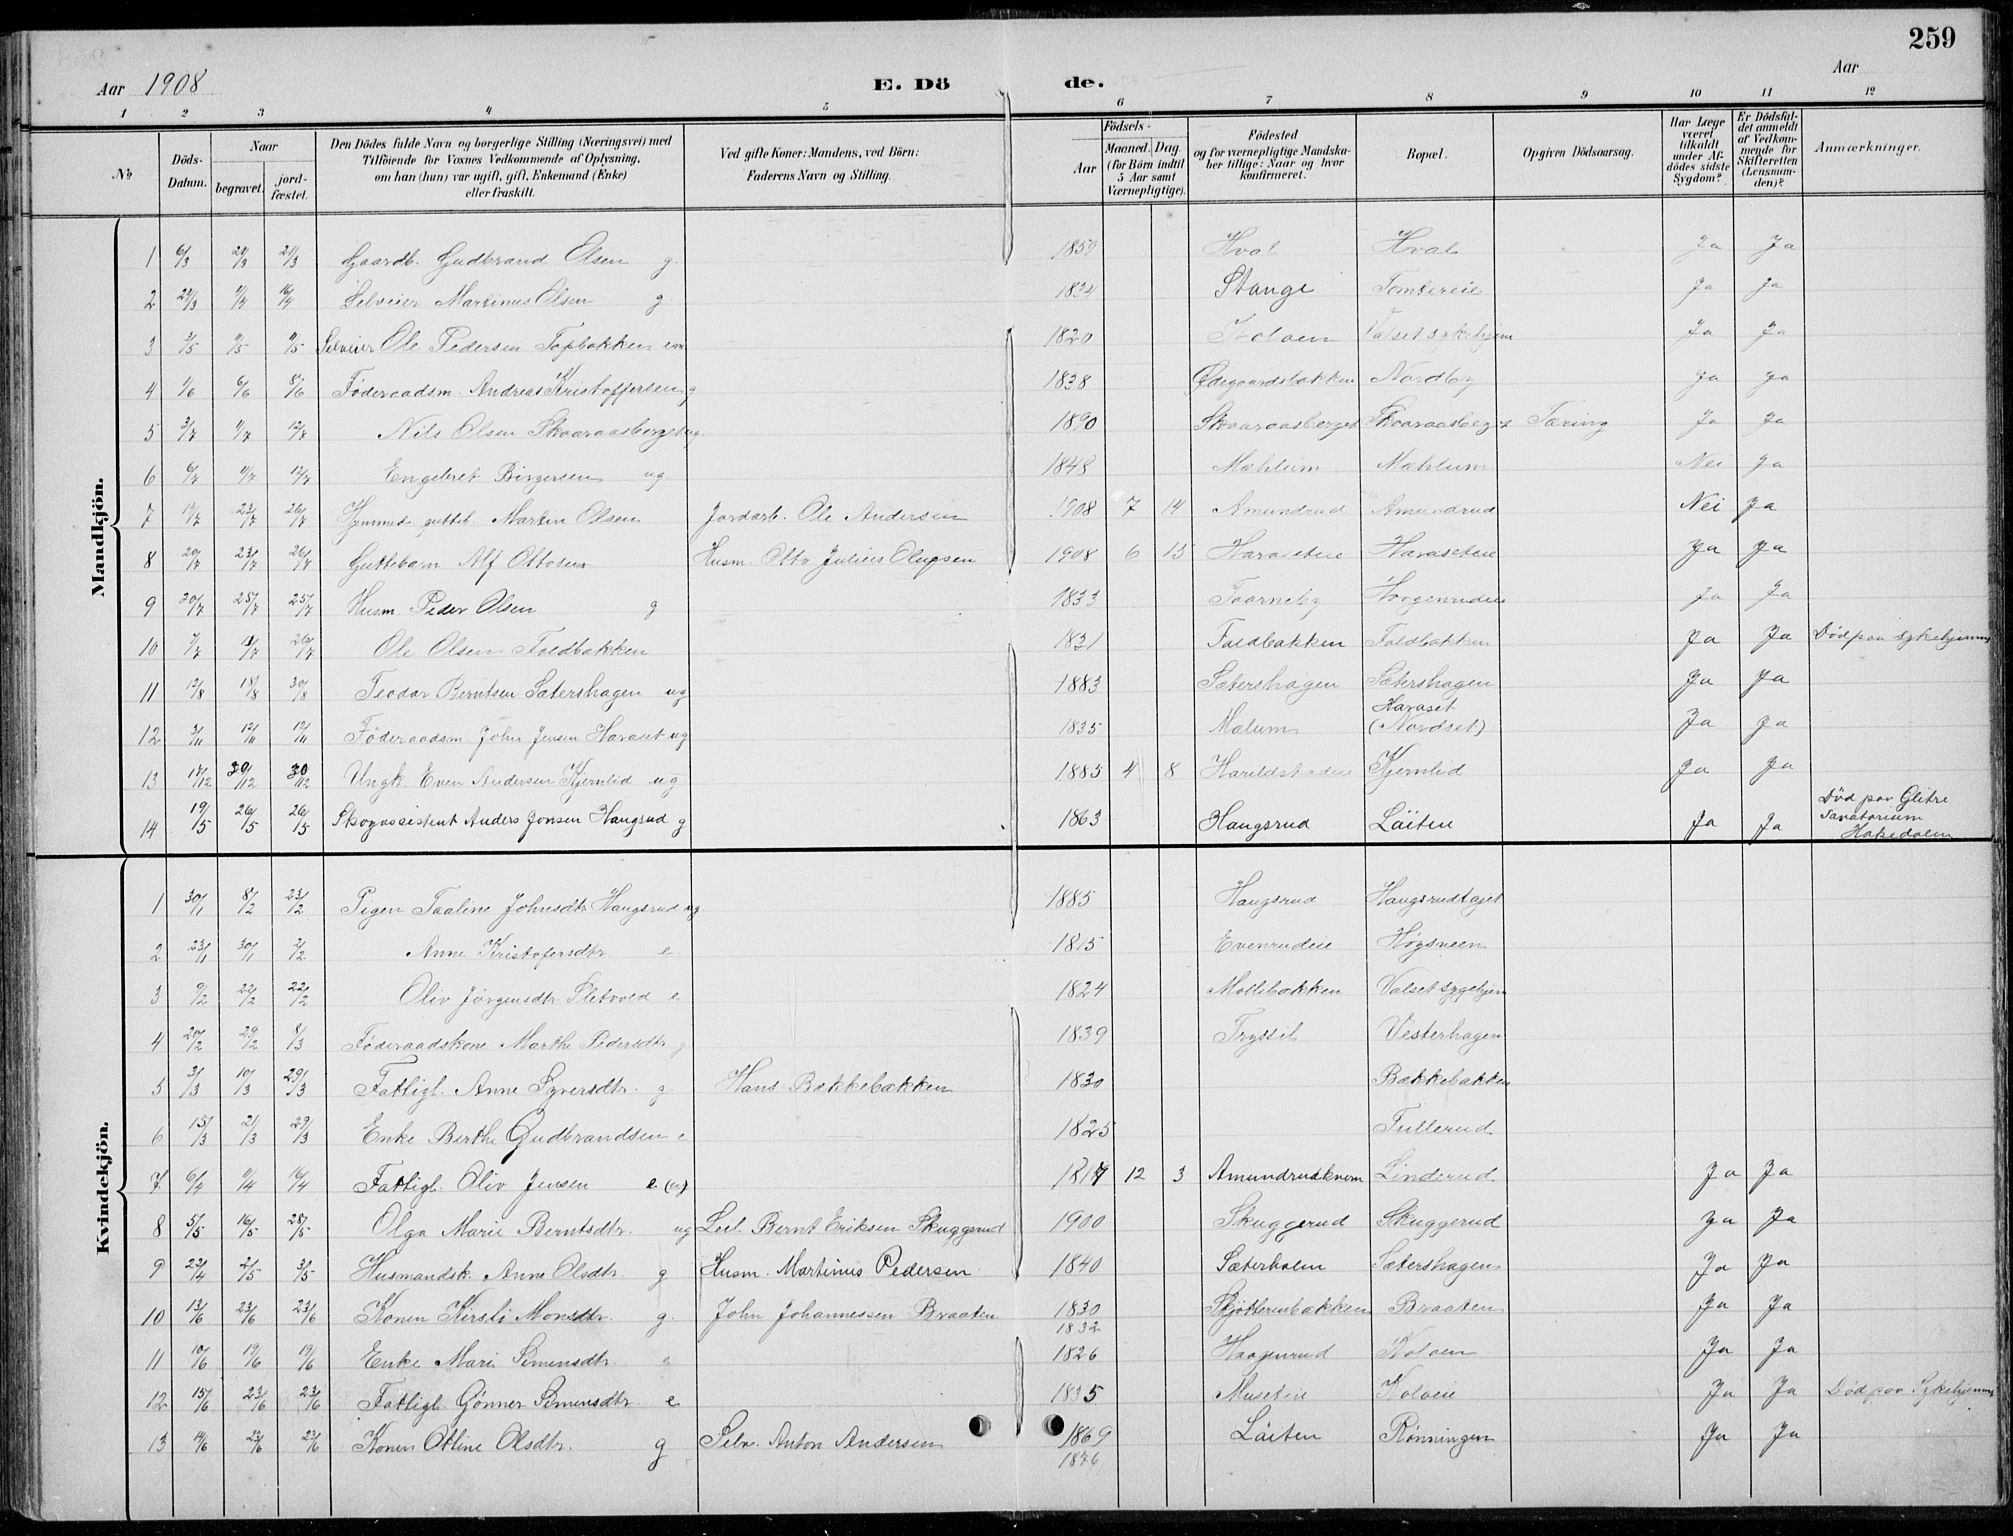 259
Aar 1908
E. Dö de.
Aar
1 2 3 4 5 6 7 8 9 10 11 12
No
Döds-Datum.
Naar
begravet.
jord-fæstet.
Den Dödes fulde Navn og borgerlige Stilling (Næringsvei) med
Tilföiende for Voxnes Vedkommende af Oplysning,
om han (hun) var ugift, gift, Enkemand (Enke)
eller fraskilt.
Ved gifte Koner: Mandens, ved Börn:
Faderens Navn og Stilling.
Födsels-
Aar
Maaned. Dag.
(for Börn indtil
5 Aar samt
Værnepligtige).
Födested
og for værnepligtige Mandska-
ber tillige: Naar og hvor
konfirmeret.
Bopæl.
Opgiven Dödsaarsag.
Har Læge
været
tilkaldt
under Af-
dödes sidste
Sygdom?
Er Dödsfal-
det anmeldt
af Vedkom-
mende for
Skifteretten
(Lensman-
den)?
Anmærkninger.
Mandkjön.
1 6/3 21/3 21/3 Gaardb. Gudbrand Olsen g. 1859 Hval Hval Ja Ja
2 21/3 Selveier Martinus Olsen g 1834 Stange Tomtereie Ja Ja
3 Selveier Ole Pedersen Topbakken em 1820 Koloen Valset sykehjem Ja Ja
4 1/6 6/6 8/6 Föderaadsm. Andreas Kristoffersen g 1838 Ødegaardsbakken Nordby Ja Ja
5 3/7 9/7 12/7 Nils Olsen Skaaraasberget ug. 1890 Skaaraasberget Skaaraasberget Tæring Ja Ja
6 6/7 11/7 12/7 Engebret Birgersen ug 1848 Mæhlum Mæhlum Nei Ja
7 19/7 23/7 26/7 Hjemmed. gutteb. Martin Olsen Jordarb. Ole Andersen 1908 7 14 Amundrud Amundrud Nei Ja
8 20/7 23/7 26/7 Guttebarn Alf Ottosen Husm. Otto Julius Olufsen 1908 6 15 Haraseteie Haraseteie Ja Ja
9 20/7 25/7 25/7 Husm. Peder Olsen g 1833 Taarneby Haagenrudeie Ja Ja
10 7/7 11/7 26/7 Ole Olsen Foldbakken 1831 Foldbakken Foldbakken Ja Ja Död paa sykehjemmet
11 12/8 18/8 30/8 Teodor Berntsen Sætershagen ug 1883 Sætershagen Sætershagen Ja Ja
12 3/11 12/11 12/11 Föderaadsm. John Jensen Haraset ug 1835 Malum Haraset (Nordset) Ja Ja
13 17/12 30/12 30/12 Ungk. Even Andersen Kjernlid ug 1885 4 8 Kjernlid Ja Ja
14 19/5 26/5 26/5 Skogassistent Anders Jonsen Haugsrud g 1863 Haugsrud Löiten Ja Ja Död paa Glitre
Sanatorium
Hakedalen
Kvindekjön.
1 30/1 8/2 23/2 Pigen Taaline Johnsdtr Haugsrud ug 1885 Haugsrud Haugsrudtajet
2 23/1 30/1 2/2 Anne Kristofersdtr e 1815 Evenrudeie Høgsveen
3 9/2 22/2 22/2 Oliv Jörgensdtr Sletvold e 1824 Mollibakken Valset sygehjem
4 20/2 29/2 8/3 Föderaadskone Marthe Pedersdtr g 1839 Tryssil Vesterhagen
5 3/3 10/3 29/3 Fattigl. Anne Syversdtr. g. Hans Bakkebakken 1830 Bakkebakken
6 15/3 21/3 29/3 Enke Berthe Gudbrandsen e 1825 Tullerud
7 6/4 11/4 16/4 Fattigl. Oliv Jensen e (u) 12 3 Amundrudkvern Linderud Ja Ja
8 5/5 16/5 28/5 Olga Marie Berntsdtr. ug Leil. Bernt Eriksen Skuggerud 1900 Skuggerud Skuggerud Ja Ja
9 23/4 2/5 3/5 Husmandsk. Anne Olsdtr. g Husm. Martinus Pedersen 1840 Sæterholm Sætershagen Ja Ja
10 13/6 23/6 23/6 Konen Kirsti Monsdtr. g. John Johannessen Braaten 1830 Skjötterenbakken Braaten Ja Ja
1832
11 10/6 19/6 19/6 Enke Mari Simensdtr. e 1826 Haagenrud Koloen Ja Ja
12 15/6 23/6 23/6 Fattigl. Gönner Simensdtr. e 1835 Museteie Koloeie Ja Ja Död paa Sykehjemmet
13 14/6 23/6 23/6 Konen Otline Olsdtr. g Selv. Anton Andersen 1869 Löiten Rønningen Ja Ja
1876